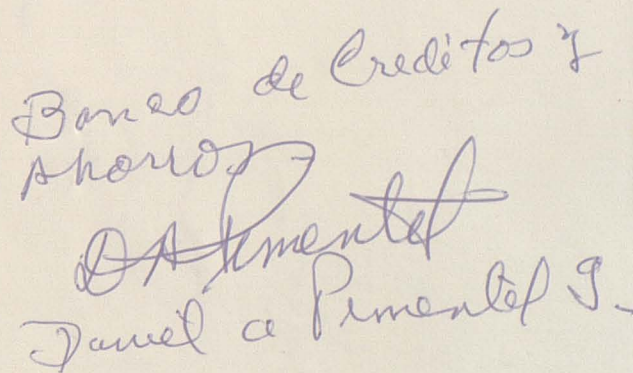 Banco de Creditos y
Ahorros
DAPimentel
Daniel a Pimentel G.